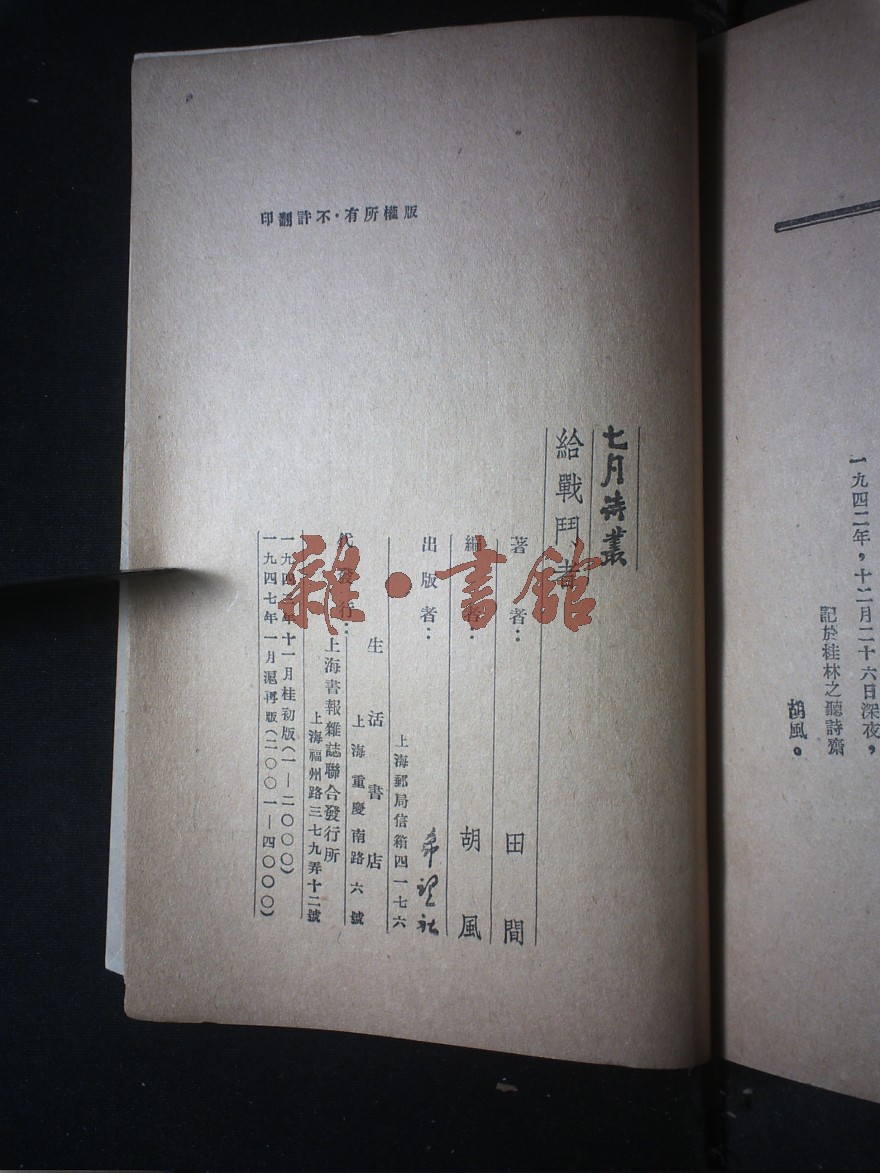 一九四二年，十二月二十六日深夜，
記於桂林之聽詩齋
胡風。
版權所有·不許翻印
七月詩叢
給戰鬥者
著者： 田間
編者： 胡風
出版者： 希望社
上海郵局信箱四一七六
生活書店
上海重慶南路六號
代發行： 上海書報雜誌聯合發行所
上海福州路三七九弄十二號
一九四三年十一月桂初版(一—二〇〇〇)
一九四七年一月滬再版(二〇〇一—四〇〇〇)
雜·書館